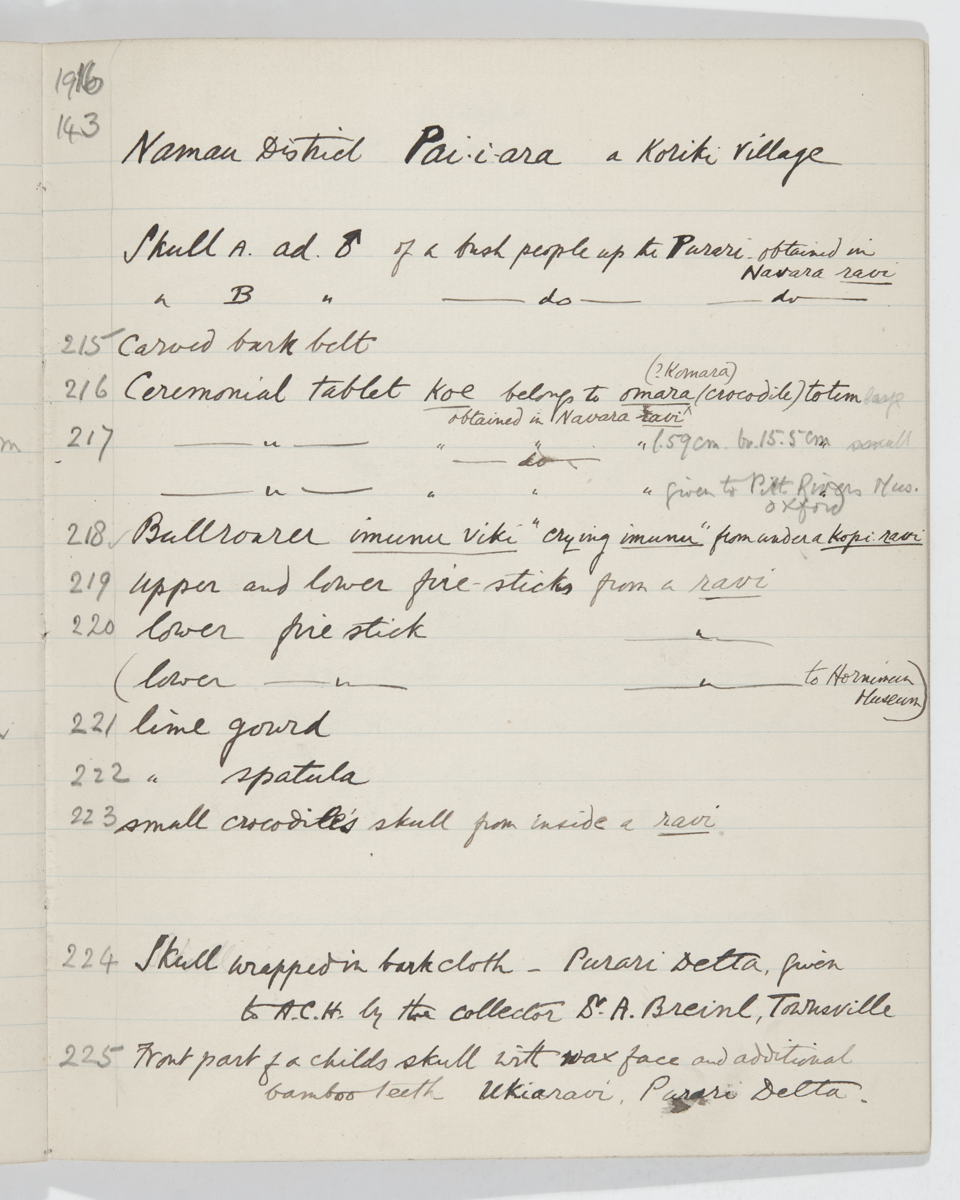 1916
143
Namau District Pai-i-ara a Koriki Village
Skull A. ad. ♂ of a bush people up the Purari. obtained in
Navara ravi
" B " —— do —— —— do ——
215 Carved bark belt
(? Komara)
216 Ceremonial tablet Koe belongs to omara (crocodile) totem large
obtained in Navara ravi
217 —— " —— " " " l. 59 cm. br. 15.5 cm " small
—— do ——
—— " —— " " " given to Pitt Rivers Mus.
Oxford
218 Bullroarer imunu viki "crying imunu" from under a Kopi-ravi
219 upper and lower fire-sticks from a ravi
220 lower fire stick —— " ——
(lower —— " —— —— " —— to Horniman
Museum)
221 lime gourd
222 " spatula
223 small crocodile's skull from inside a ravi
224 Skull wrapped in bark cloth – Purari Delta, given
to A.C.H. by the collector Dr. A. Breinl, Townsville
225 Front part of a childs skull with wax face and additional
bamboo teeth Ukiaravi, Purari Delta.